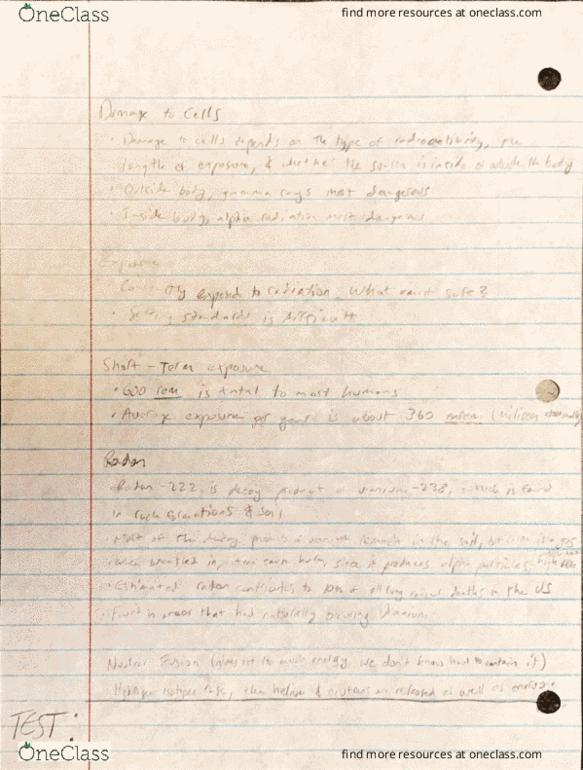 OneClass
find more resources at oneclass.com
Damage to Cells
• Damage to cells depends on the type of radioactivity, the
length of exposure, & whether the source is inside or outside the body
• Outside body, gamma rays most dangerous
• Inside body, alpha radiation most dangerous
Exposure
exposed to radiation. What amt safe?
• standards is difficult
Short-Term exposure
• 600 rem is fatal to most humans
• Average exposure per year is about 360 mrem
Radon
• Radon-222 is decay product of uranium-238, which is found
in rock formations & soil
• Most of the decay products of uranium remain in the soil, but radon is a gas
• When breathed in, it can cause harm, since it produces alpha particles,
• Estimated radon contributes to 10% of all lung cancer deaths in the US
• Found in areas that had naturally occurring uranium
Nuclear Fusion (gives off too much energy, we don't know how to contain it)
Hydrogen isotopes fuse, then helium & neutrons are released as well as energy
TEST:
OneClass
find more resources at oneclass.com